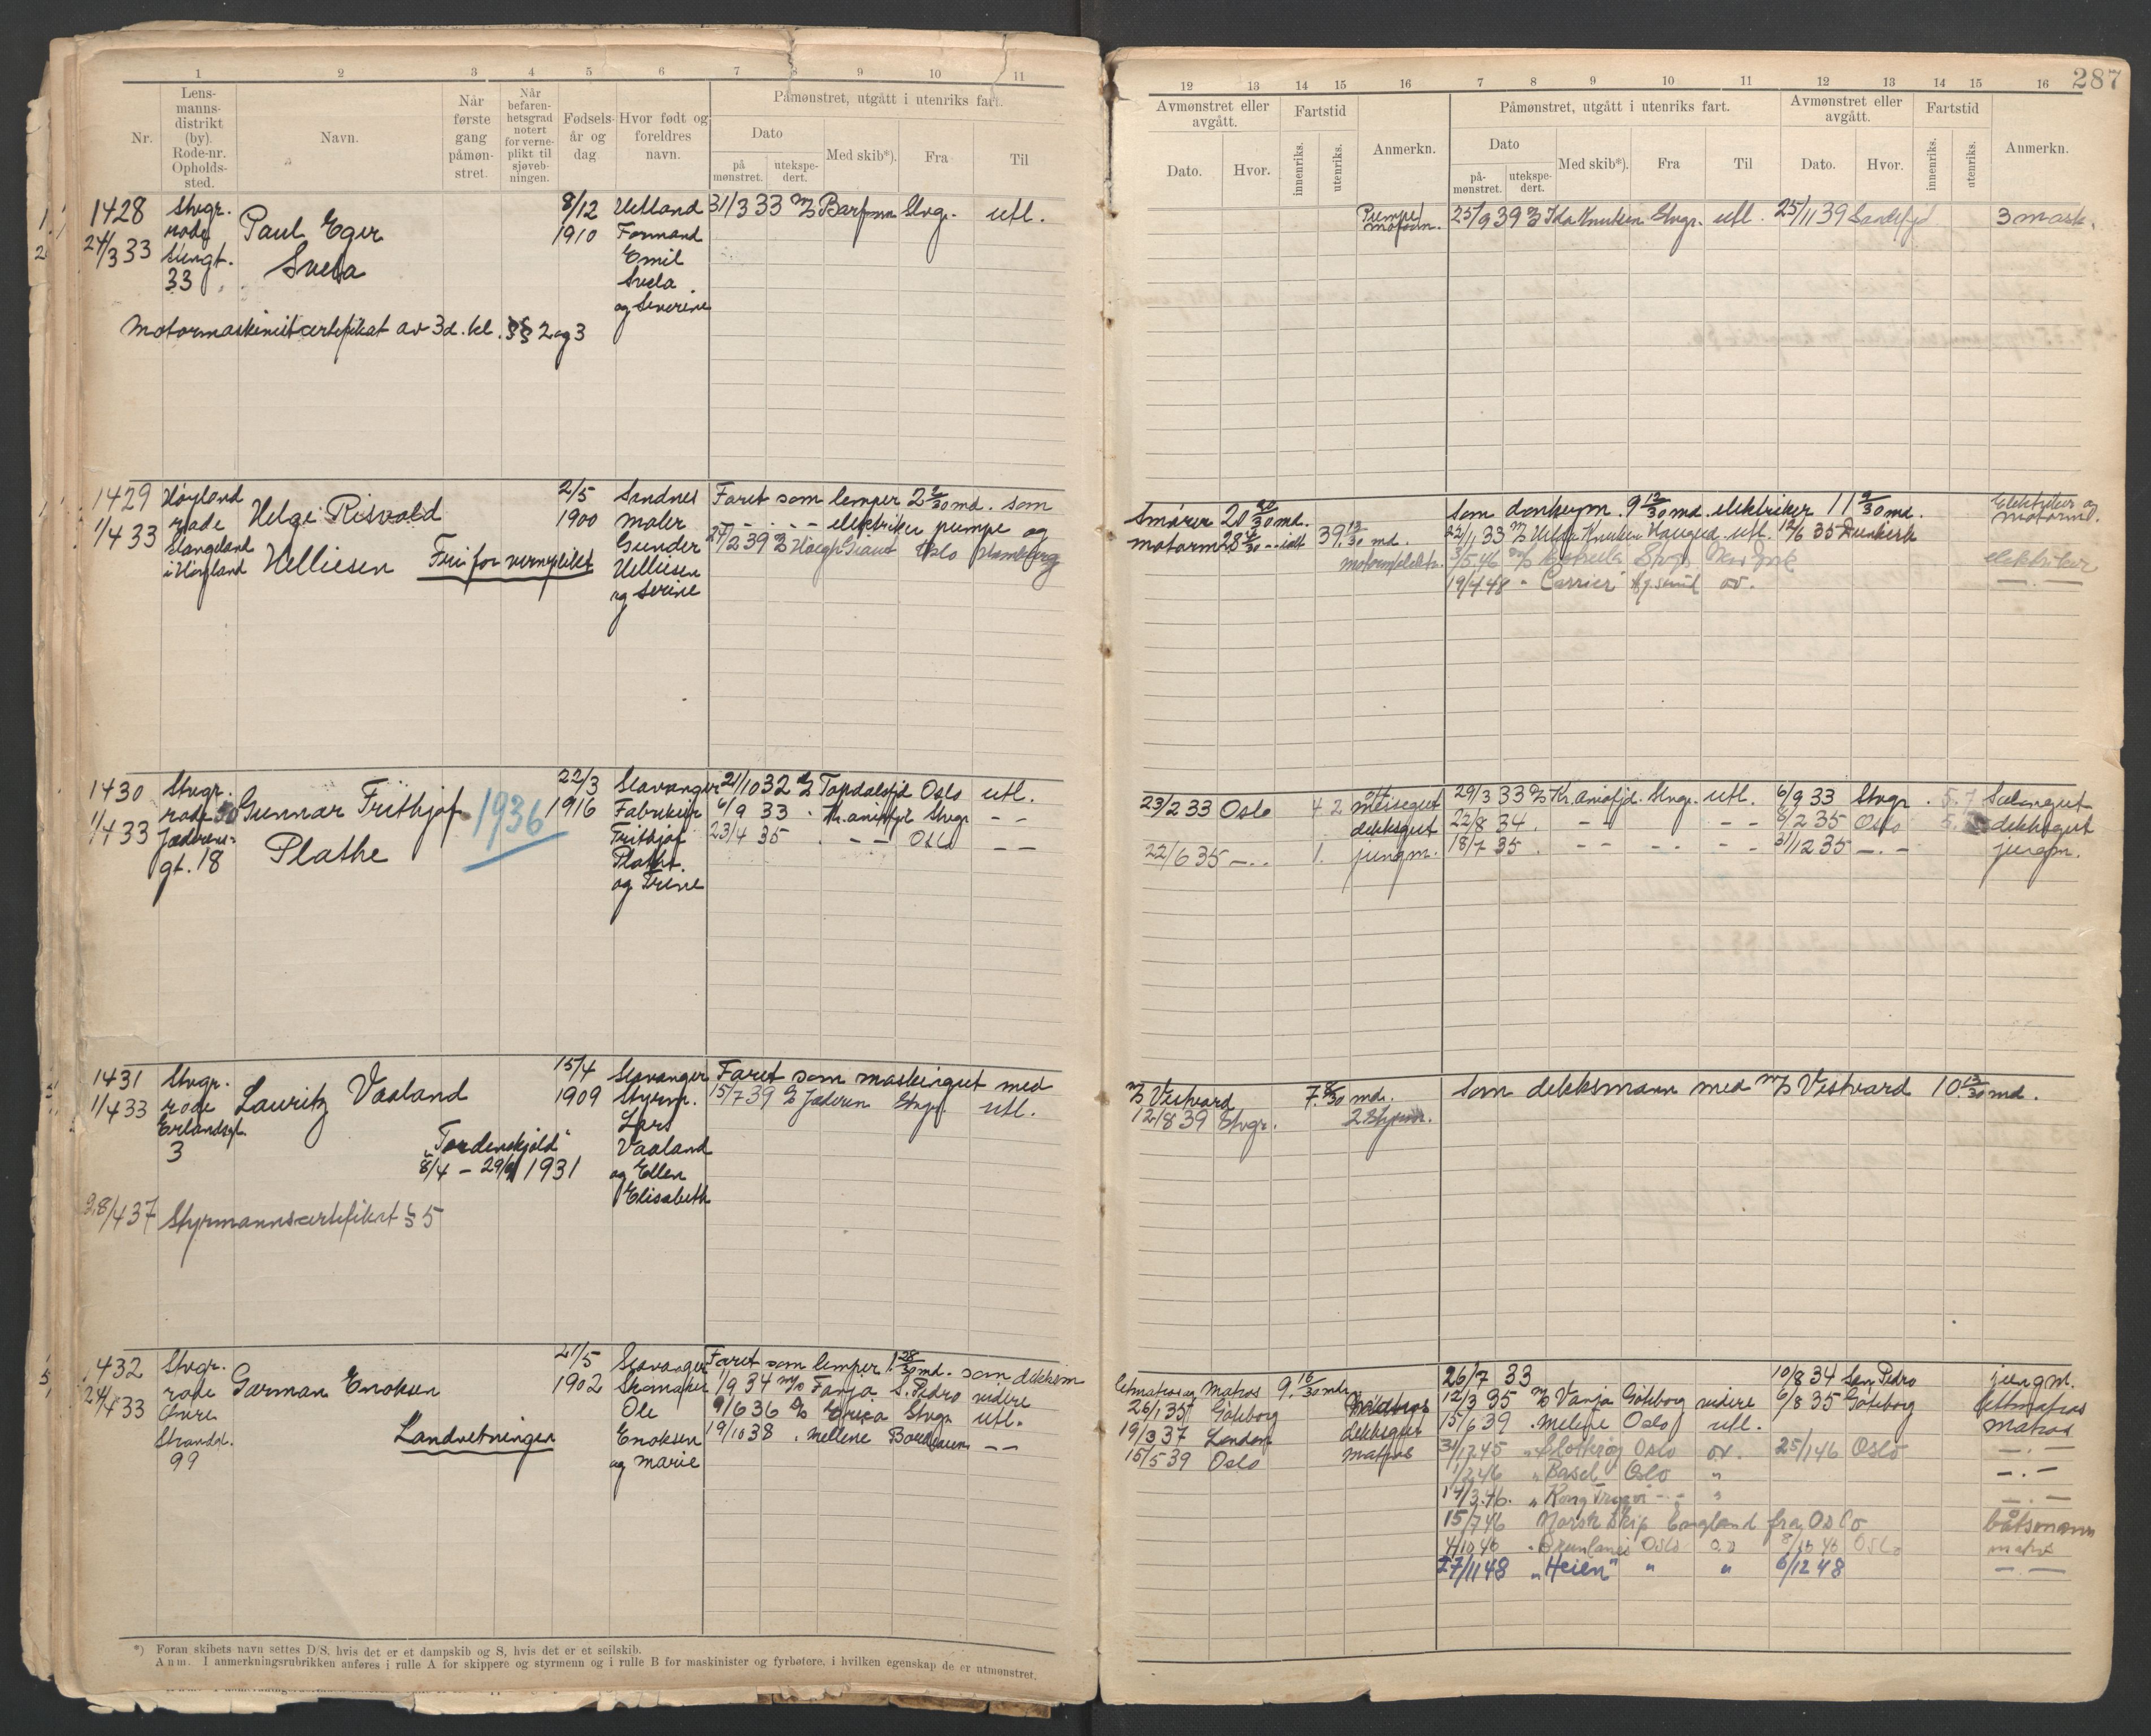 1 2 3 4 5 6 7 8 9 10 11
Nr.
Lens-
manns-
distrikt
(by).
Rode-nr.
Opholds-
sted.
Navn.
Når
første
gang
påmøn-
stret.
Når
befaren-
hetsgrad
notert
for verne-
plikt til
sjøveb-
ningen.
Fødsels-
år og
dag
Hvor født og
foreldres
navn.
Påmønstret, utgått i utenriks fart.
Dato
på
mønstret.
utekspe-
dert.
Med skib*).
Fra
Til
1428 Stvgr. Paul Eger 8/12 31/3 33 Stvgr. utl.
24/3 33 rode 1910 Formand
33 Svela Emil
Svela
og Severine
Motormaskinistcertifikat av 3d. kl. §§ 2 og 3
1429 Høyland Helge Risvold 2/5 Sandnes Faret som lemper 2 md. som
1/4 33 rode 1900 Maler elektriker pumpe og
Stangeland Helliesen Fri for verneplikt Gunder 27/2 39 Høegh Oslo Hamburg
i Høyland Helliesen
og Serine
1430 Stvgr. Gunnar Frithjof 1936 22/3 Stavanger 21/10 32 Topdalsfjd Oslo utl.
1/4 33 rode 30 Plathe 1916 6/9 33 Kr.aniafjd Stvgr. — —
Jædrens- Frithjof 23/4 35 . — — Oslo — —
gt. 18 Plathe
og Trine
1431 Stvgr. Lauritz Vaaland 15/4 Stavanger Faret som maskingut med
1/4 33 rode 1909 Styrm. 15/7 39 Jæderen Stvgr. utl.
Erlandsgt. Lars
3 „Tordenskjold" Vaaland
8/4 — 29/ 1931 og Ellen
Elisabeth
28/4 37 Styrmannscertifikat § 5
1432 Stvgr. Garman Enoksen 21/5 Stavanger Faret som lemper 1 28/30 md. som dekksm
24/4 33 rode 1902 Skomaker 1/9 34 Fanja S. Pedro videre
Øvre Ole 9/6 36 Erica Stvgr. utl.
Strandgt. Landvetningen Enoksen 19/10 38 . Mellene Bordeaux — —
99 og Marie
*) Foran skibets navn settes D/S, hvis det er et dampskib og S, hvis det er et seilskib.
Anm. I anmerkningsrubrikken anføres i rulle A for skippere og styrmenn og i rulle B for maskinister og fyrbøtere, i hvilken egenskap de er utmønstret.
287
12 13 14 15 16 7 8 9 10 11 12 13 14 15 16
Avmønstret eller
avgått.
Dato.
Hvor.
Fartstid
innenriks.
utenriks.
Anmerkn.
Påmønstret, utgått i utenriks fart.
Dato
på-
mønstret.
utekspe-
dert.
Med skib*).
Fra
Til
Avmønstret eller
avgått.
Dato.
Hvor.
Fartstid
innenriks.
utenriks.
Anmerkn.
25/9 39 Ida Knutsen Stvgr. utl. 25/11 39 Sandefjd 3 mask.
Smører 20 20/30 md. Som donkeym. 9 12/30 md. elektriker 11 md. Elektriker og
motorm. 39 12/30 md. 22/11 33 Hilda Knutsen Haugesd. utl. 12/6 35 Dunkerk motorm.
3/5 46 Stvgr New York elektriker
19/4 48 „ Carrier ov. — . —
23/2 33 Oslo 4 2 messegut 29/3 33 Kr.aniafjd. Stvgr. utl. 6/9 33 Stvgr. 5. 7 Salongut
dekksgut 22/8 34 . — — — — 8/2 35 Oslo 5. dekksgut
22/6 35 — . . 1. jungm. 18/7 35 . — — — — — — 31/12 35 — . — jungm.
Vestvard 7 md. Som dekksmann med M/S Vestvard 10 13/30 md.
12/8 39 Stvgr. 2 Styrm.
Letmatros og Matros 9 16/30 mdr 26/7 33 10/8 34 San Pedro jungm.
26/1 35 Göteborg Matros 12/3 35 Vanja Göteborg videre 6/8 35 Göteborg lettmatros
19/3 37 London dekksgut 15/6 39 . Mellene Oslo utl. matros
15/5 39 Oslo matros 31/12 45 Oslo ov. 25/1 46 Oslo — . —
1/2 46 „ Basel Oslo „ — . —
14/3 46. „ Kong Trygve — . — „ — . —
15/7 46 Norsk skip England fra Oslo båtsmann
4/10 46 „ Brunlanes Oslo o.v 8/10 46 Oslo matros
27/11 48 „Heien" „ „ 6/12 48 — . —